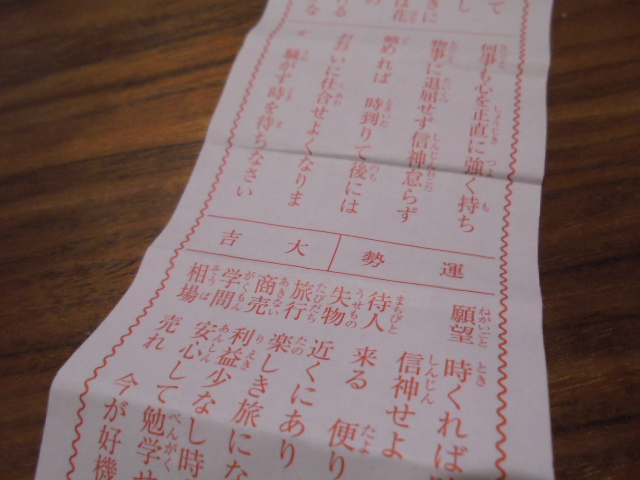 て
し
きに
は花
の
いる
な
何事も心を正直に強く持ち
惣事に退屈せず信神怠らず
勉めれば 時到りて後には
おおいに仕合せよくなりま
す 騒がず時を待ちなさい
運勢 大吉
願望 時くれば
信神せよ
待人 来る 便り
失物 近くにあり
旅行 楽しき旅にな
商売 利益少なし時
売れ
学問 安心して勉学せ
相場 今が好機